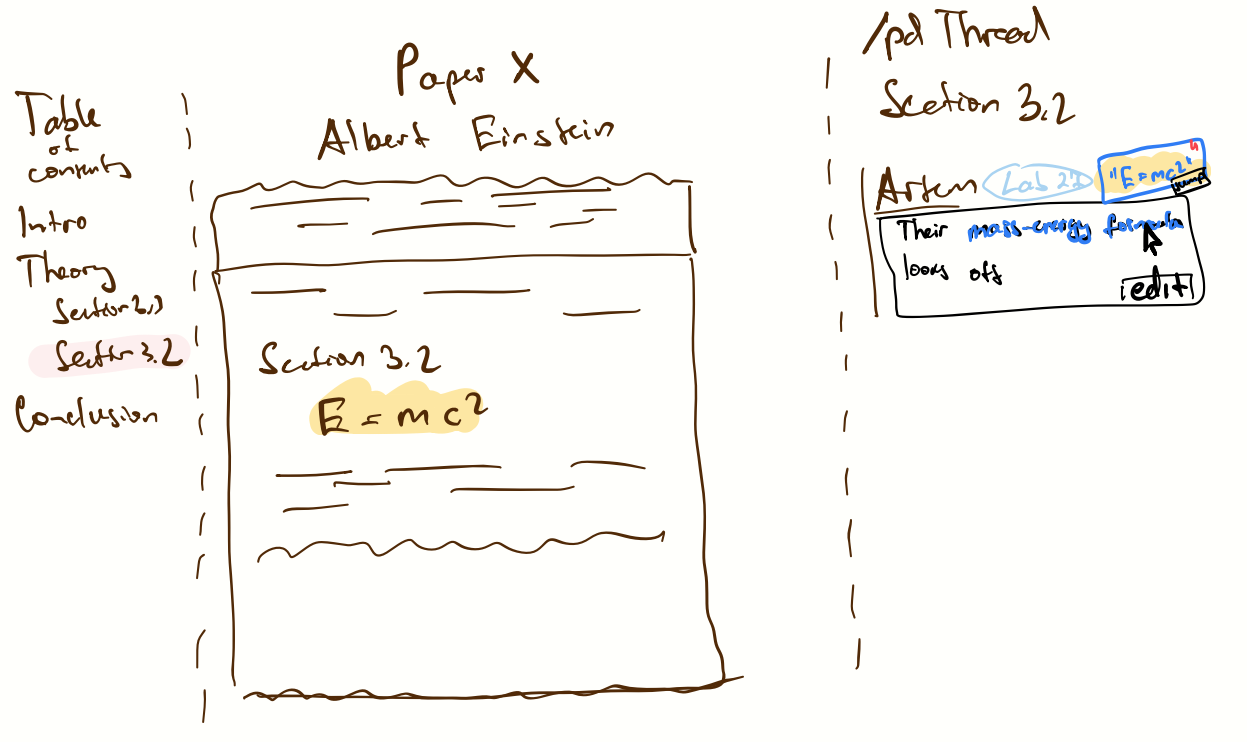 Table
of
contents
Intro
Theory
Section 3.2
Conclusion
Paper X
Albert Einstein
Section 3.2
E = mc²
/pd Thread
Section 3.2
Artem
"E = mc²"
jump
Their mass-energy formula
looks off
edit